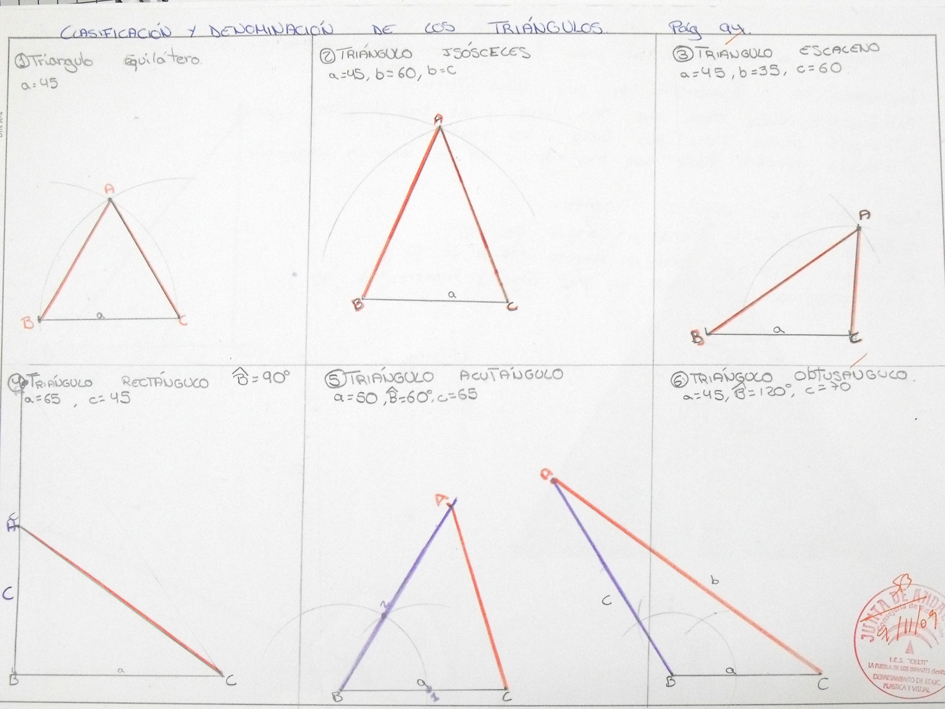 CLASIFICACIÓN Y DENOMINACIÓN DE LOS TRIÁNGULOS. Pág 94.
① Triangulo Equilátero
a=45
A
B
a
C
② TRIÁNGULO ISÓSCELES
a=45, b=60, b=c
A
B
a
C
③ TRIANGULO ESCALENO
a=45, b=35, c=60
A
B
a
C
④ TRIÁNGULO RECTÁNGULO B̂=90º
a=65, c=45
A
C
B
a
C
⑤ TRIÁNGULO ACUTÁNGULO
a=50, B̂=60º, c=65
A
2
B
a
1
C
⑥ TRIÁNGULO OBTUSÁNGULO.
a=45, B̂=120º, c=70
A
C
b
B
a
C
JUNTA DE ANDA
I.E.S. "CELTI"
DEPARTAMENTO DE EDUC.
PLASTICA Y VISUAL